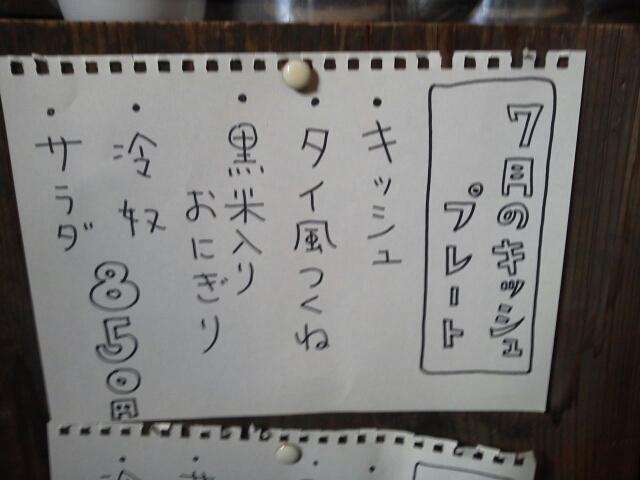 7日のキッシュ
プレート
・キッシュ
・タイ風つくね
・黒米入り
おにぎり
・冷奴
・サラダ
850円